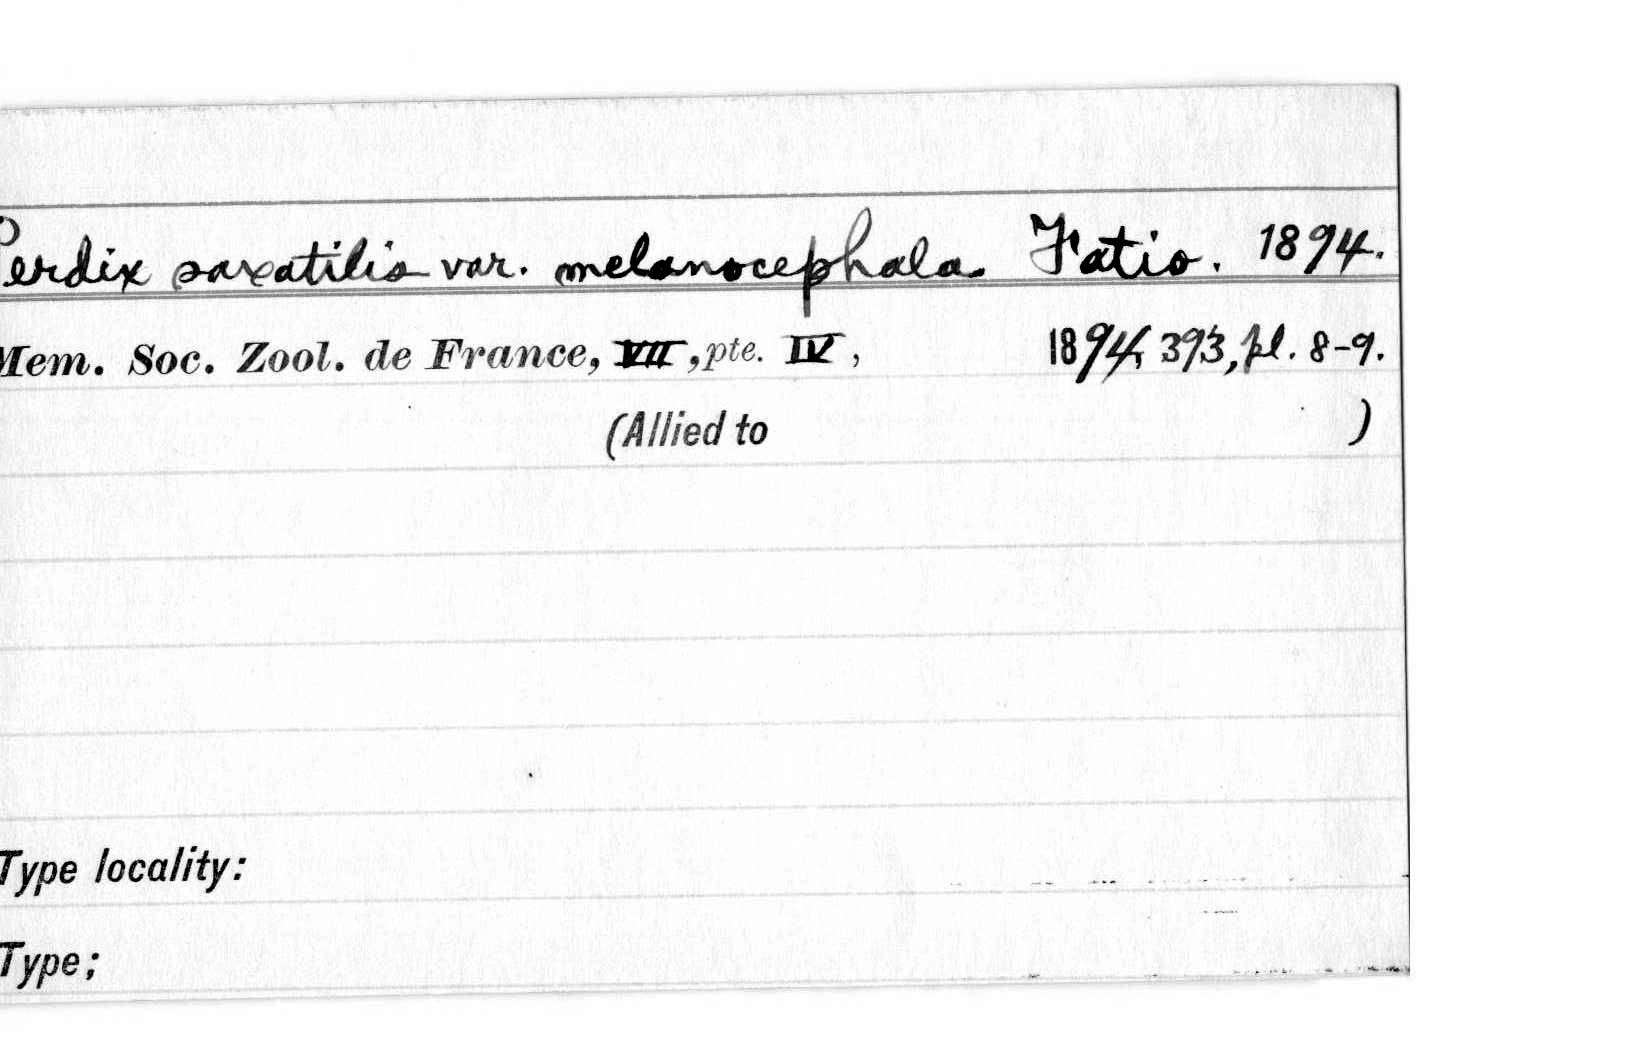 Perdix saxatilis var. melanocephala. Fatio. 1894.
Mem. Soc. Zool. de France, VII, pte. IV, 1894, 393, pl. 8-9.
(Allied to )
Type locality:
Type;